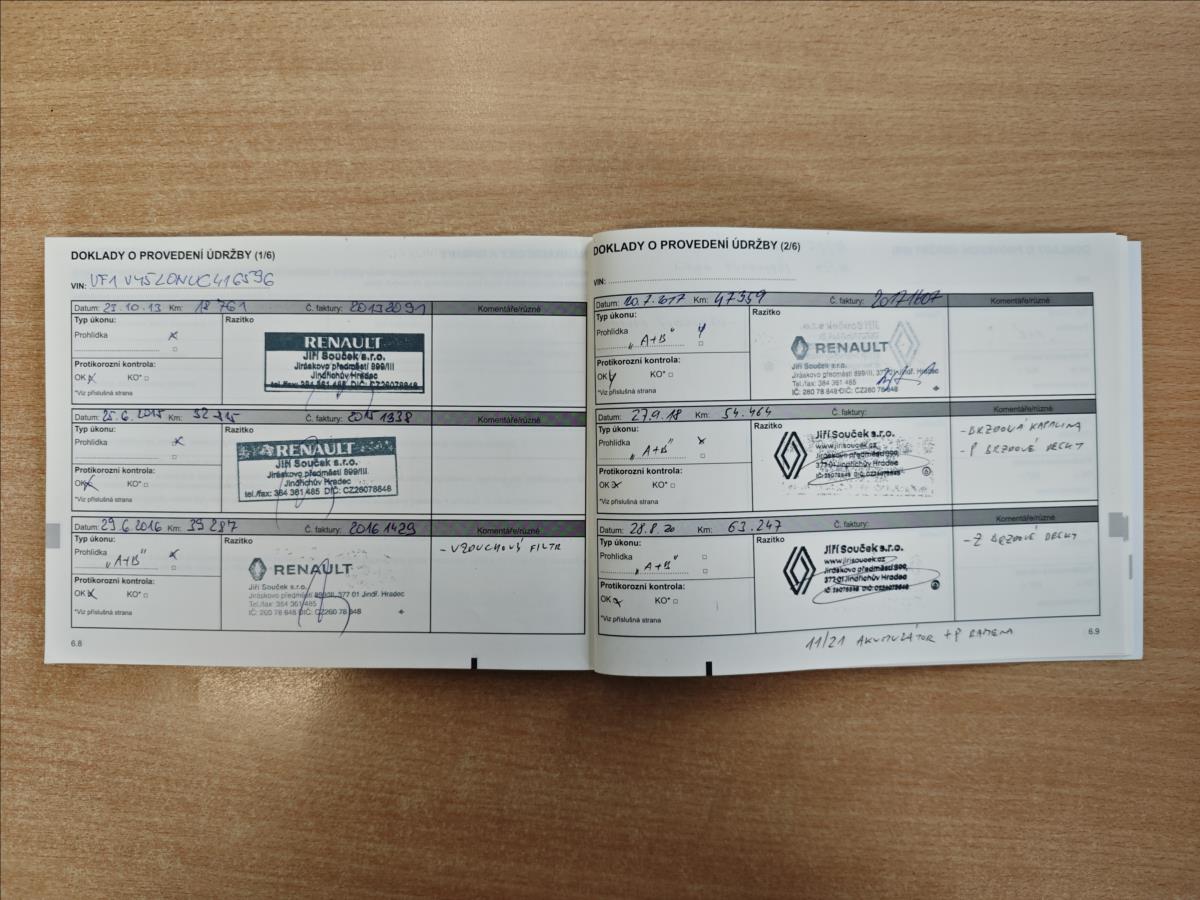 DOKLADY O PROVEDENÍ ÚDRŽBY (1/6)
VIN: VF1VY5L0NUC416596
Datum: 23.10.13 Km: 18 761 Č. faktury: 20132091 Komentáře/různé
Typ úkonu: Razítko
Prohlídka x
RENAULT
Jiří Souček s.r.o.
Jiráskovo předměstí 899/III
Jindřichův Hradec
tel./fax: 384 361 485 DIČ: CZ26078848
Protikorozní kontrola:
OK x KO*
*Viz příslušná strana
Datum: 25.6.2015 Km: Č. faktury: 20151338 Komentáře/různé
Typ úkonu: Razítko
Prohlídka x
RENAULT
Jiří Souček s.r.o.
Jiráskovo předměstí 899/III
Jindřichův Hradec
tel./fax: 384 361 485 DIČ: CZ26078848
Protikorozní kontrola:
OK x KO*
*Viz příslušná strana
Datum: 29.6.2016 Km: 39 287 Č. faktury: 20161429 Komentáře/různé
Typ úkonu: Razítko
- VZDUCHOVÝ FILTR
Prohlídka x
"A+B"
RENAULT
Jiří Souček s.r.o.
Jiráskovo předměstí 899/III, 377 01 Jindř. Hradec
Tel./fax: 384 361 485
IČ: 260 78 848 DIČ: CZ260 78 848
Protikorozní kontrola:
OK x KO*
*Viz příslušná strana
6.8
DOKLADY O PROVEDENÍ ÚDRŽBY (2/6)
VIN:
Datum: 20.7.2017 Km: 47359 Č. faktury: 20171607 Komentáře/různé
Typ úkonu: Razítko
Prohlídka
"A+B"
RENAULT
Jiří Souček s.r.o.
Jiráskovo předměstí 899/III, 377 01 Jindř. Hradec
Tel./fax: 384 361 485
IČ: 260 78 848 DIČ: CZ260 78 848
Protikorozní kontrola:
OK KO*
*Viz příslušná strana
Datum: 27.9.18 Km: 54.464 Č. faktury: Komentáře/různé
Typ úkonu: Razítko
- BRZDOVÁ KAPALINA
- P BRZDOVÉ DESKY
Prohlídka x
"A+B"
Jiří Souček s.r.o.
www.jirisoucek.cz
Jiráskovo předměstí 899,
377 01 Jindřichův Hradec
IČ: 26078848 DIČ: CZ26078848
Protikorozní kontrola:
OK x KO*
*Viz příslušná strana
Datum: 28.8.20 Km: 63.247 Č. faktury: Komentáře/různé
Typ úkonu: Razítko
- Z BRZDOVÉ DESKY
Prohlídka
"A+B"
Jiří Souček s.r.o.
www.jirisoucek.cz
Jiráskovo předměstí 899,
377 01 Jindřichův Hradec
IČ: 26078848 DIČ: CZ26078848
Protikorozní kontrola:
OK x KO*
*Viz příslušná strana
11/21 AKUMULÁTOR + P RAMENA
6.9